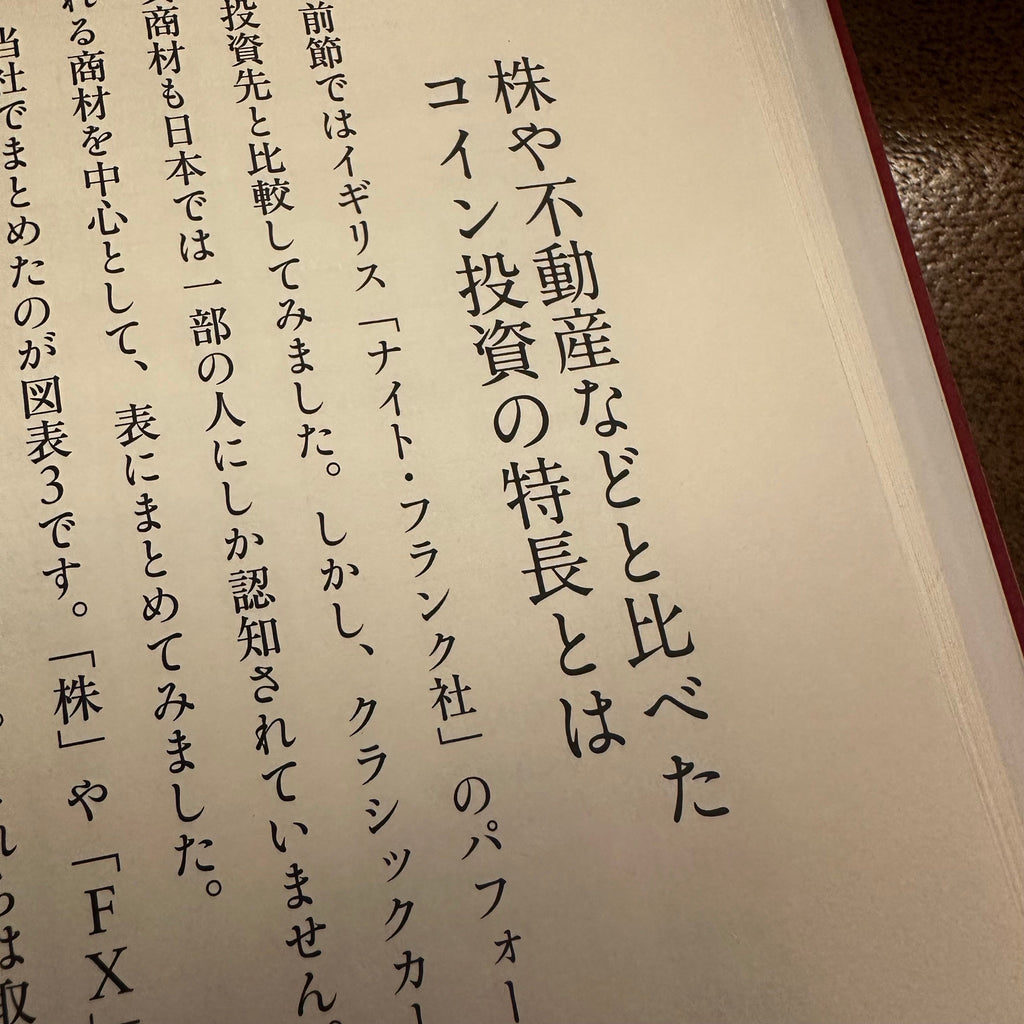 株や不動産などと比べた
コイン投資の特長とは
前節ではイギリス「ナイト・フランク社」のパフォー
投資先と比較してみました。しかし、クラシックカー
商材も日本では一部の人にしか認知されていません。
れる商材を中心として、表にまとめてみました。
当社でまとめたのが図表3です。「株」や「FX」
らは取